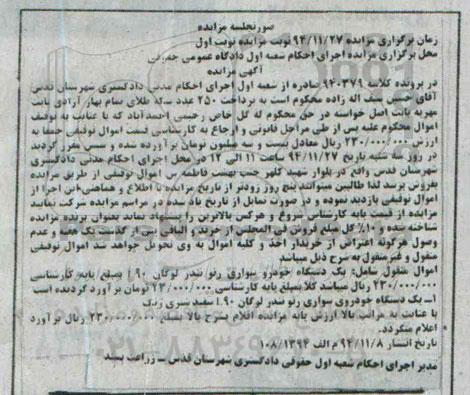 صورتجلسه مزایده
زمان برگزاری مزایده ۹۴/۱۱/۲۷ نوبت مزایده نوبت اول
محل برگزاری مزایده اجرای احکام شعبه اول دادگاه عمومی حقوقی
آگهی مزایده
در پرونده کلاسه ۹۴۰۳۷۹ صادره از شعبه اول اجرای احکام مدنی دادگستری شهرستان قدس
آقای حسن سیف اله زاده محکوم است به پرداخت ۲۵۰ عدد سکه طلای تمام بهار آزادی بابت
مهریه بابت اصل خواسته در حق محکوم له گل خاص رحیمی احمدآباد که با عنایت به توقیف
اموال محکوم علیه پس از طی مراحل قانونی و ارجاع به کارشناسی قیمت اموال توقیفی جمعا به
ارزش ۲۳۰/۰۰۰/۰۰۰ ریال معادل بیست و سه میلیون تومان برآورده شده و سپس مقرر گردید
در روز سه شنبه تاریخ ۹۴/۱۱/۲۷ ساعت ۱۱ الی ۱۲ در محل اجرای احکام مدنی دادگستری
شهرستان قدس واقع در بلوار شهید کلهر جنب بهشت فاطمه س اموال توقیفی از طریق مزایده
بفروش برسد لذا طالبین میتوانند پنج روز زودتر از تاریخ مزایده با اطلاع و هماهنگی این اجرا از
اموال توقیفی بازدید نموده و در صورت تمایل از تاریخ یاد شده در مراسم مزایده شرکت نمایند
مزایده از قیمت پایه کارشناس شروع و هرکس بالاترین را پیشنهاد نماید بعنوان برنده مزایده
شناخته شده و ۱۰٪ کل مبلغ فروش فی المجلس از خرید و الباقی پس از گذشت یک هفته و عدم
وصول هرگونه اعتراض از خریدار اخذ و کلیه اموال به وی تحویل خواهد شد اموال توقیفی
منقول و غیرمنقول به شرح ذیل میباشد
اموال منقول شامل: یک دستگاه خودرو سواری رنو تندر لوگان ۹۰ بمبلغ پایه کارشناسی
۲۳۰/۰۰۰/۰۰۰ ریال میباشد کلا بمبلغ پایه کارشناسی ۲۳/۰۰۰/۰۰۰ تومان برآورد گردیده است
۱ـ یک دستگاه خودروی سواری رنو تندر لوگان ۹۰ـ سفید شیری رنگ
با عنایت به مراتب بالا ارزش پایه مزایده اقلام بشرح بالا بمبلغ ۲۳۰/۰۰۰/۰۰۰ ریال برآورد
اعلام میگردد.
تاریخ انتشار ۹۴/۱۱/۸ م الف ۱۰۸/۱۳۹۴
مدیر اجرای احکام شعبه اول حقوقی دادگستری شهرستان قدس ـ زراعت پسند